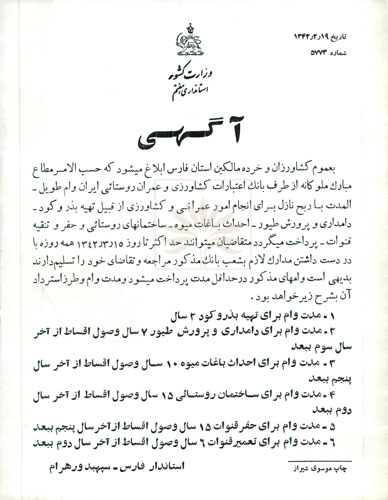 تاریخ ۱۳۴۲٫۲٫۱۹
شماره ۵۷۷۳
وزارت کشور
استانداری هفتم
آگهی
بعموم کشاورزان و خرده مالکین استان فارس ابلاغ میشود که حسب الامر مطاع
مبارک ملوکانه از طرف بانک اعتبارات کشاورزی و عمران روستائی ایران وام طویل ـ
المدت با ربح نازل برای انجام امور عمرانی و کشاورزی از قبیل تهیه بذر و کود ـ
دامداری و پرورش طیور ـ احداث باغات میوه ـ ساختمانهای روستائی و حفر و تنقیه
قنوات ـ پرداخت میگردد متقاضیان میتوانند حداکثر تا روز ۱۳۴۲٫۳٫۱۵ همه روزه با
در دست داشتن مدارک لازم بشعب بانک مذکور مراجعه و تقاضای خود را تسلیم دارند
بدیهی است وامهای مذکور در حداقل مدت پرداخت میشود و مدت وام و طرز استرداد
آن بشرح زیر خواهد بود .
۱ ـ مدت وام برای تهیه بذر و کود ۲ سال
۲ ـ مدت وام برای دامداری و پرورش طیور ۷ سال وصول اقساط از آخر
سال سوم ببعد
۳ ـ مدت وام برای احداث باغات میوه ۱۰ سال وصول اقساط از آخر سال
پنجم ببعد
۴ ـ مدت وام برای ساختمان روستائی ۱۵ سال وصول اقساط از آخر سال
دوم ببعد
۵ ـ مدت وام برای حفر قنوات ۱۵ سال وصول اقساط از آخر سال پنجم ببعد
۶ ـ مدت وام برای تعمیر قنوات ۶ سال وصول اقساط از آخر سال دوم ببعد
استاندار فارس ـ سپهبد ورهرام
چاپ موسوی شیراز